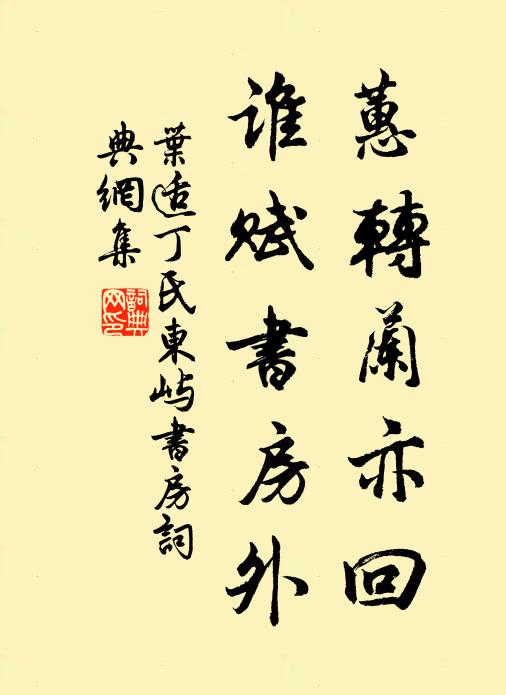 蕙轉蘭亦回
誰賦書房外
葉适丁氏東嶼書房詞
典網集
詞典
网印